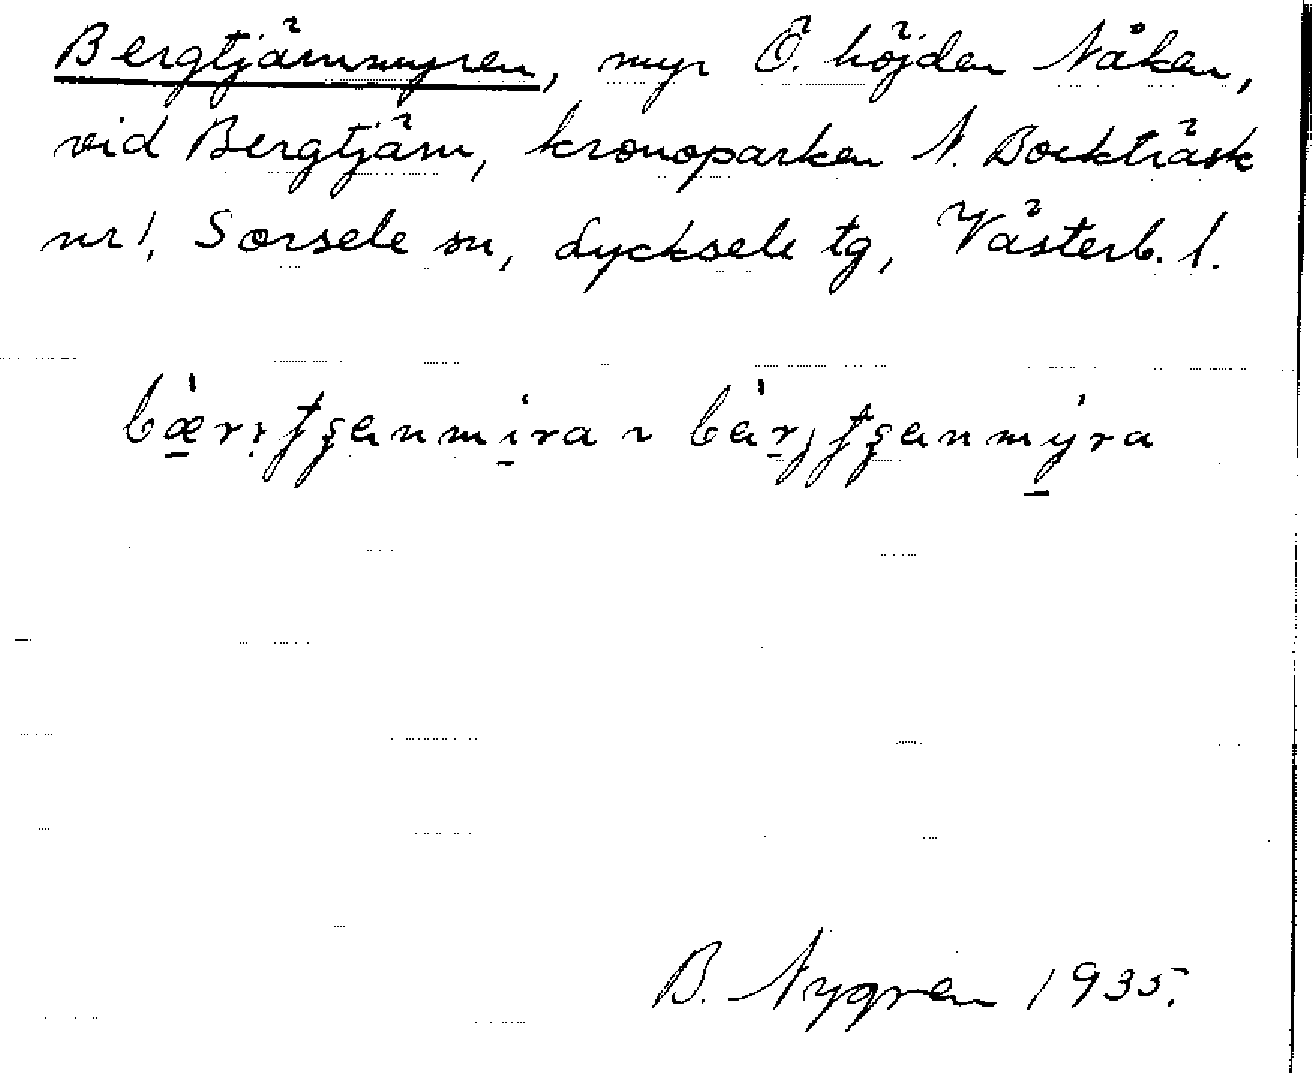 Bergtjärnmyren, myr Ö. höjden Nåken,
vid Bergtjärn, kronoparken N. Bockträsk
nr 1, Sorsele sn, Lycksele tg, Västerb. l.
B. Nygren 1935.